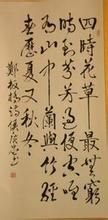 四時花草最無窮
時到芬芳過便空唯
有山中蘭與竹經
春歷夏又秋冬
鄭板橋詩